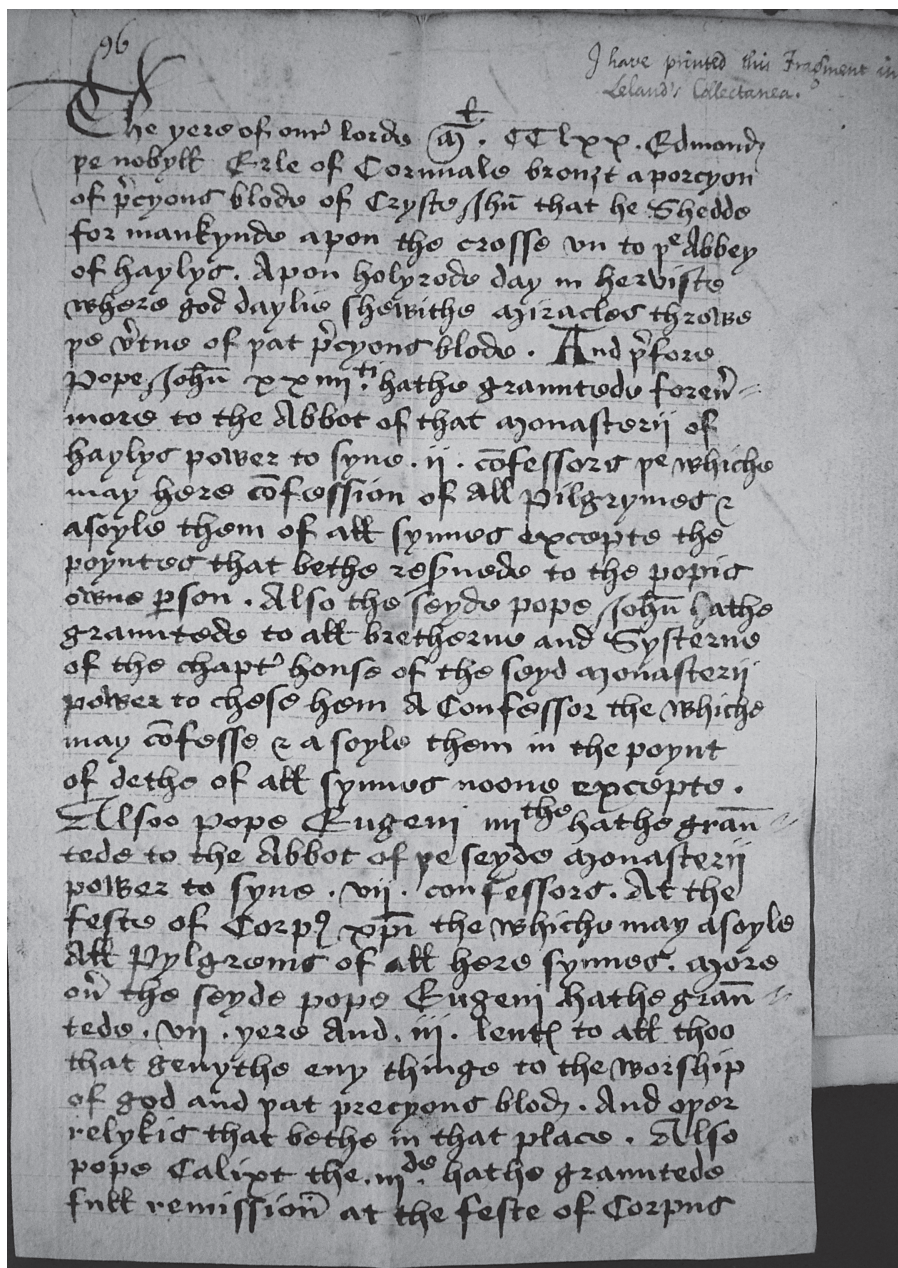 96
I have printed this Fragment in
Leland's Collectanea.
The yere of our lorde M. CClxx. Edmond
þe nobyll Erle of Cornuale brouȝt a porcyon
of p̄cyous blode of Cryste Jhū that he Shedde
for mankynde apon the crosse vn to þe Abbey
of haylys. Apon holyrode day in herviste
where god daylie shewithe Miracles throwe
þe v̄tue of þat p̄cyous blode. And þ̄fore
Pope Johñ xxiiiti. hathe grauntede foreū=
more to the Abbot of that Monasterij of
haylys power to syne .ii. cōfessors þe whiche
may here cōfession of All Pilgrymes &
asoyle them of all synnes excepte the
poyntes that bethe res̄uede to the popis
owne p̱son. Also the seyde pope Johñ hathe
grauntede to all bretherne and Systerne
of the chapt̄ house of the seyd Monasterij
power to chese hem A Confessor the whiche
may cōfesse & a soyle them in the poynt
of dethe of all synnes noone excepte.
Alsoo pope Eugenij iiiithe hathe graū=
tede to the Abbot of þe seyde Monasterij
power to syne .vii. confessors. At the
feste of Corpꝯ xp̄i the whiche may asoyle
All Pylgrems of all here synnes. More
oū the seyde pope Eugenij hathe graū=
tede .vii. yere And .iii. lentꝭ to all thoo
that geuythe eny thinge to the worship
of god and þat precyous blode. And oþer
relykis that bethe in that place. Also
pope Calixt the .iiide. hathe grauntede
full remissioñ at the feste of Corpus